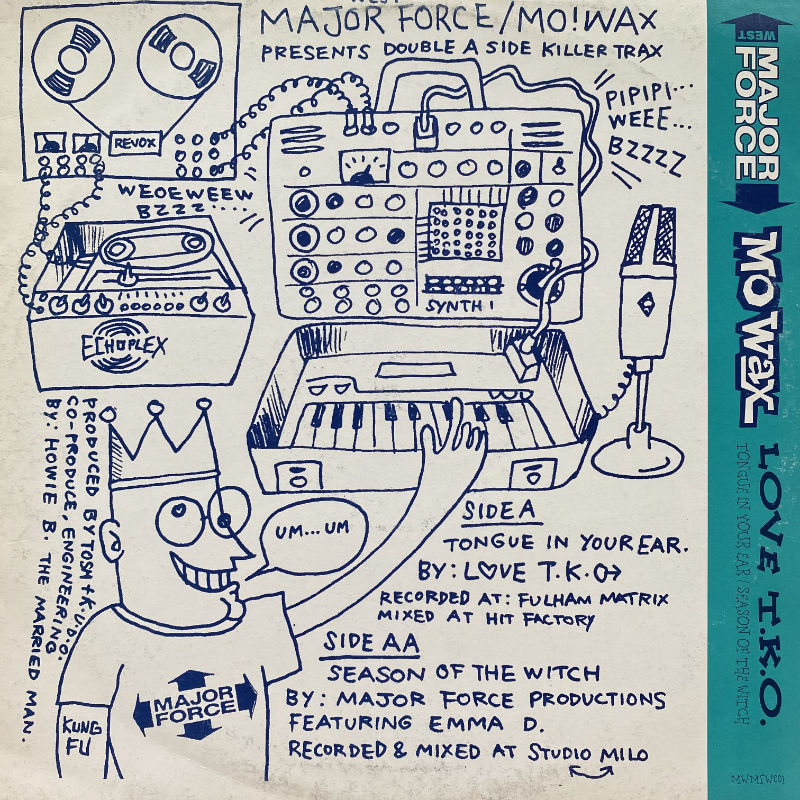 WEST
MAJOR FORCE/MO!WAX
PRESENTS DOUBLE A SIDE KILLER TRAX
REVOX
PIPIPI...
WEEE...
BZZZZ
WEOEWEEW
BZZZ.....
SYNTHI
ECHOPLEX
PRODUCED BY TOSH + K.U.D.O.
CO-PRODUCE, ENGINEERING
BY: HOWIE B. THE MARRIED MAN.
UM...UM
MAJOR
FORCE
KUNG
FU
SIDE A
TONGUE IN YOUR EAR.
BY: L♡VE T.K.O→
RECORDED AT: FULHAM MATRIX
MIXED AT HIT FACTORY
SIDE AA
SEASON OF THE WITCH
BY: MAJOR FORCE PRODUCTIONS
FEATURING EMMA D.
RECORDED & MIXED AT STUDIO MILO
WEST
MAJOR
FORCE
MO Wax
LOVE T.K.O.
TONGUE IN YOUR EAR / SEASON OF THE WITCH